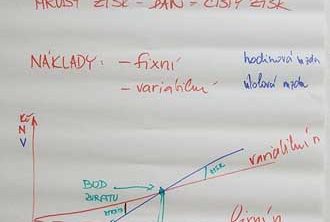 HRUBÝ ZISK - DAŇ = ČISTÝ ZISK
NÁKLADY: - fixní hodinová mzda
- variabilní úkolová mzda
Kč
N
V
BOD
ZVRATU
ZTRÁTA
ZISK
variabilní n